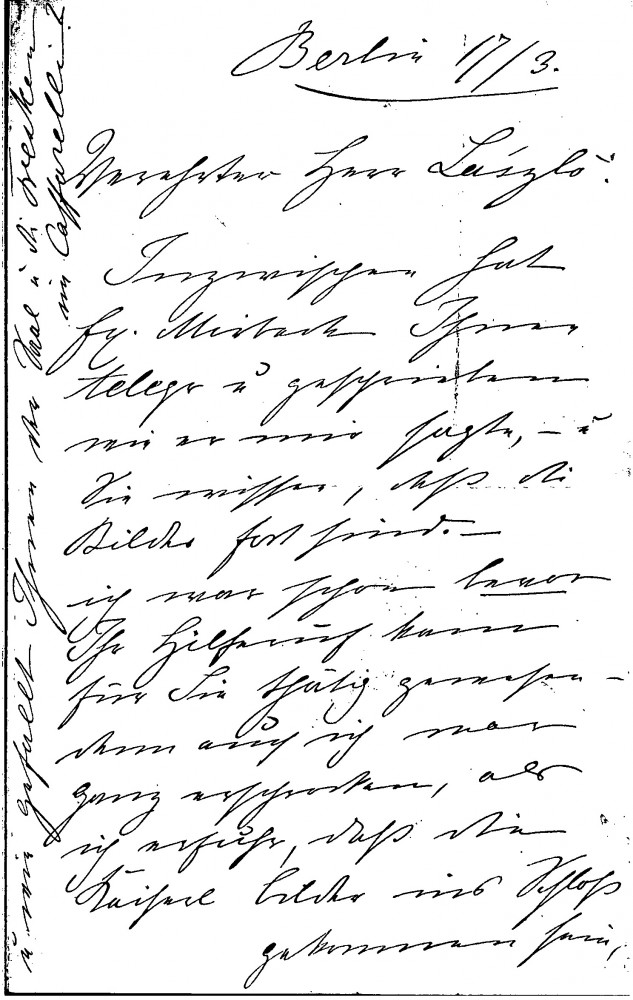 Berlin 17/3.
Verehrter Herr László!
Inzwischen hat
Ex. Mirbach Ihnen
telegr u geschrieben
wie er mir sagte, – u
Sie wissen, daß die
Bilder fort sind. –
ich war schon bevor
Ihr Hilferuf kam
für Sie thätig gewesen –
denn auch ich war
ganz erschrocken, als
ich erfuhr, daß die
Kaiserl bilder ins Schloß
gekommen sein,
u wie gefällt Ihnen der Saal u die Fresken
im Caffarelli?